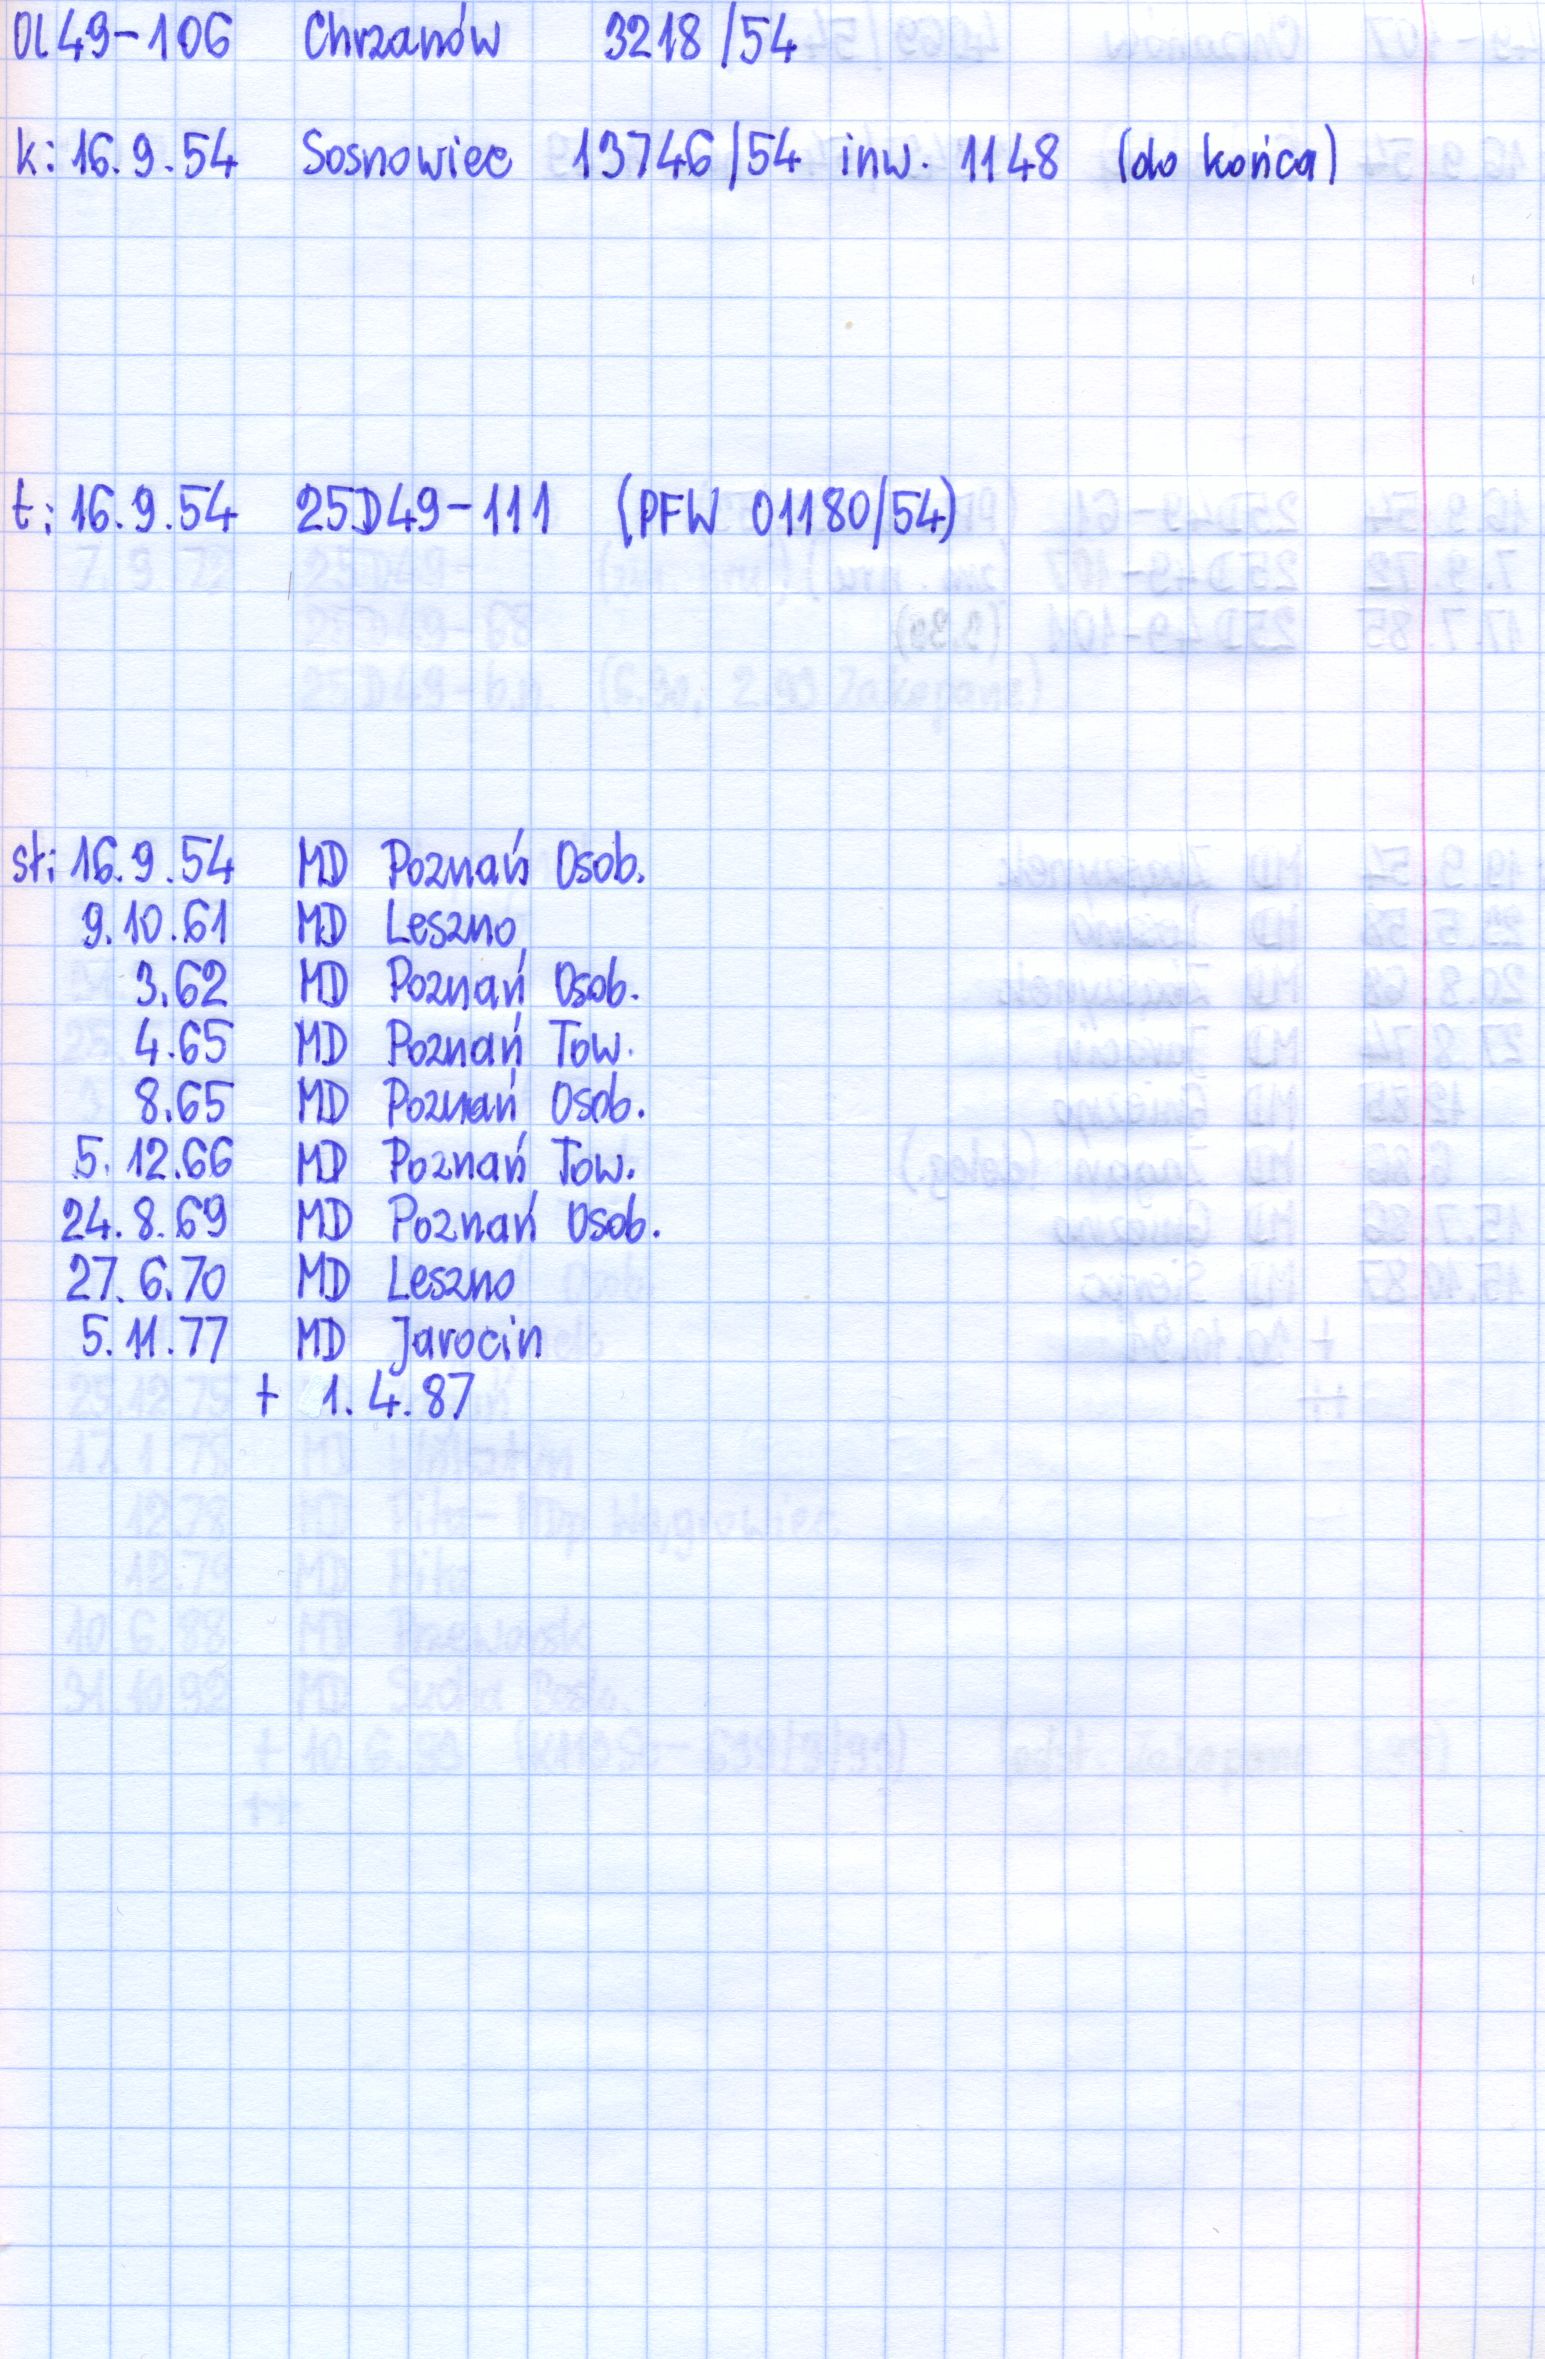 Ol49-106 Chrzanów 3218/54
k: 16.9.54 Sosnowiec 13746/54 inw. 1148 (do końca)
t: 16.9.54 25D49-111 (PFW 01180/54)
st: 16.9.54 MD Poznań Osob.
9.10.61 MD Leszno
3.62 MD Poznań Osob.
4.65 MD Poznań Tow.
8.65 MD Poznań Osob.
5.12.66 MD Poznań Tow.
24.8.69 MD Poznań Osob.
27.6.70 MD Leszno
5.11.77 MD Jarocin
+ 1.4.87